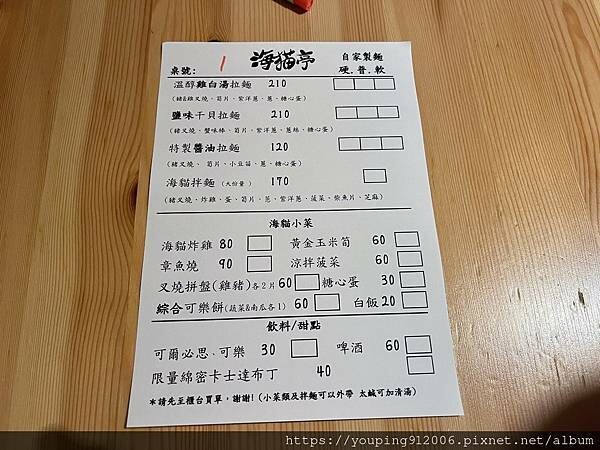 桌號: 1 海貓亭 自家製麵
硬.普.軟
溫醇雞白湯拉麵 210
(豬&雞叉燒、筍片、紫洋蔥、蔥、糖心蛋)
鹽味干貝拉麵 210
(豬叉燒、蟹味棒、筍片、紫洋蔥、蔥絲、糖心蛋)
特製醬油拉麵 120
(豬叉燒、筍片、小豆苗、蔥、糖心蛋)
海貓拌麵 (大份量) 170
(豬叉燒、炸雞、蛋、筍片、蔥、紫洋蔥、菠菜、柴魚片、芝麻)
海貓小菜
海貓炸雞 80 黃金玉米筍 60
章魚燒 90 涼拌菠菜 60
叉燒拼盤(雞豬)各2片 60 糖心蛋 30
綜合可樂餅(蔬菜&南瓜各1) 60 白飯 20
飲料/甜點
可爾必思、可樂 30 啤酒 60
限量綿密卡士達布丁 40
*請先至櫃台買單，謝謝!(小菜類及拌麵可以外帶 太鹹可加清湯)
https://youping912006.pixnet.net/album